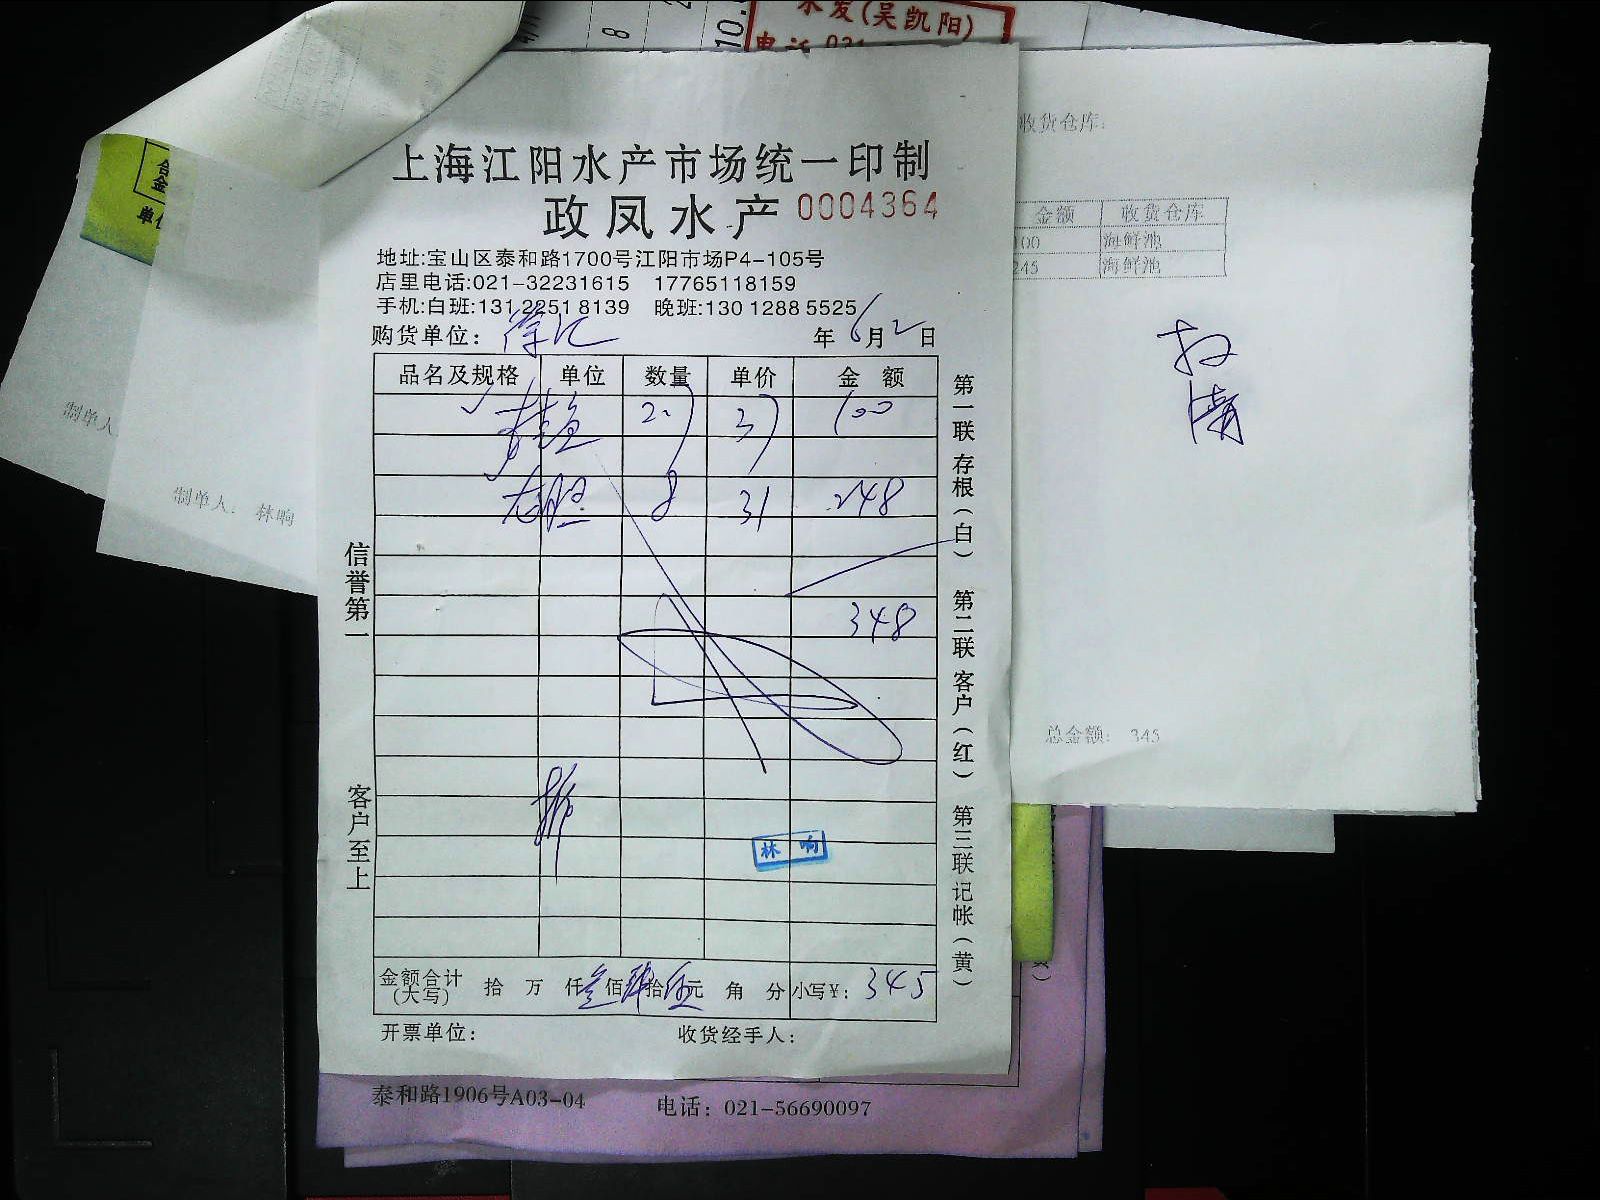 水发(吴凯阳)
电话 021
8
10.
收货仓库:
合
金
单位
上海江阳水产市场统一印制
政凤水产 0004364
地址:宝山区泰和路1700号江阳市场P4-105号
店里电话:021-32231615 17765118159
手机:白班:131 2251 8139 晚班:130 1288 5525
购货单位: 徐汇 年 6 月 2 日
品名及规格 单位 数量 单价 金额
桂鱼 2.7 37 100
老胆 8 31 248
348
林响
金额合计(大写) 拾 万 仟 叁 佰 肆 拾 伍 元 角 分 小写¥: 345
开票单位: 收货经手人:
信誉第一 客户至上
第一联 存根(白) 第二联 客户(红) 第三联 记帐(黄)
金额 收货仓库
100 海鲜池
245 海鲜池
总金额: 345
制单人
制单人: 林响
泰和路1906号A03-04 电话: 021-56690097